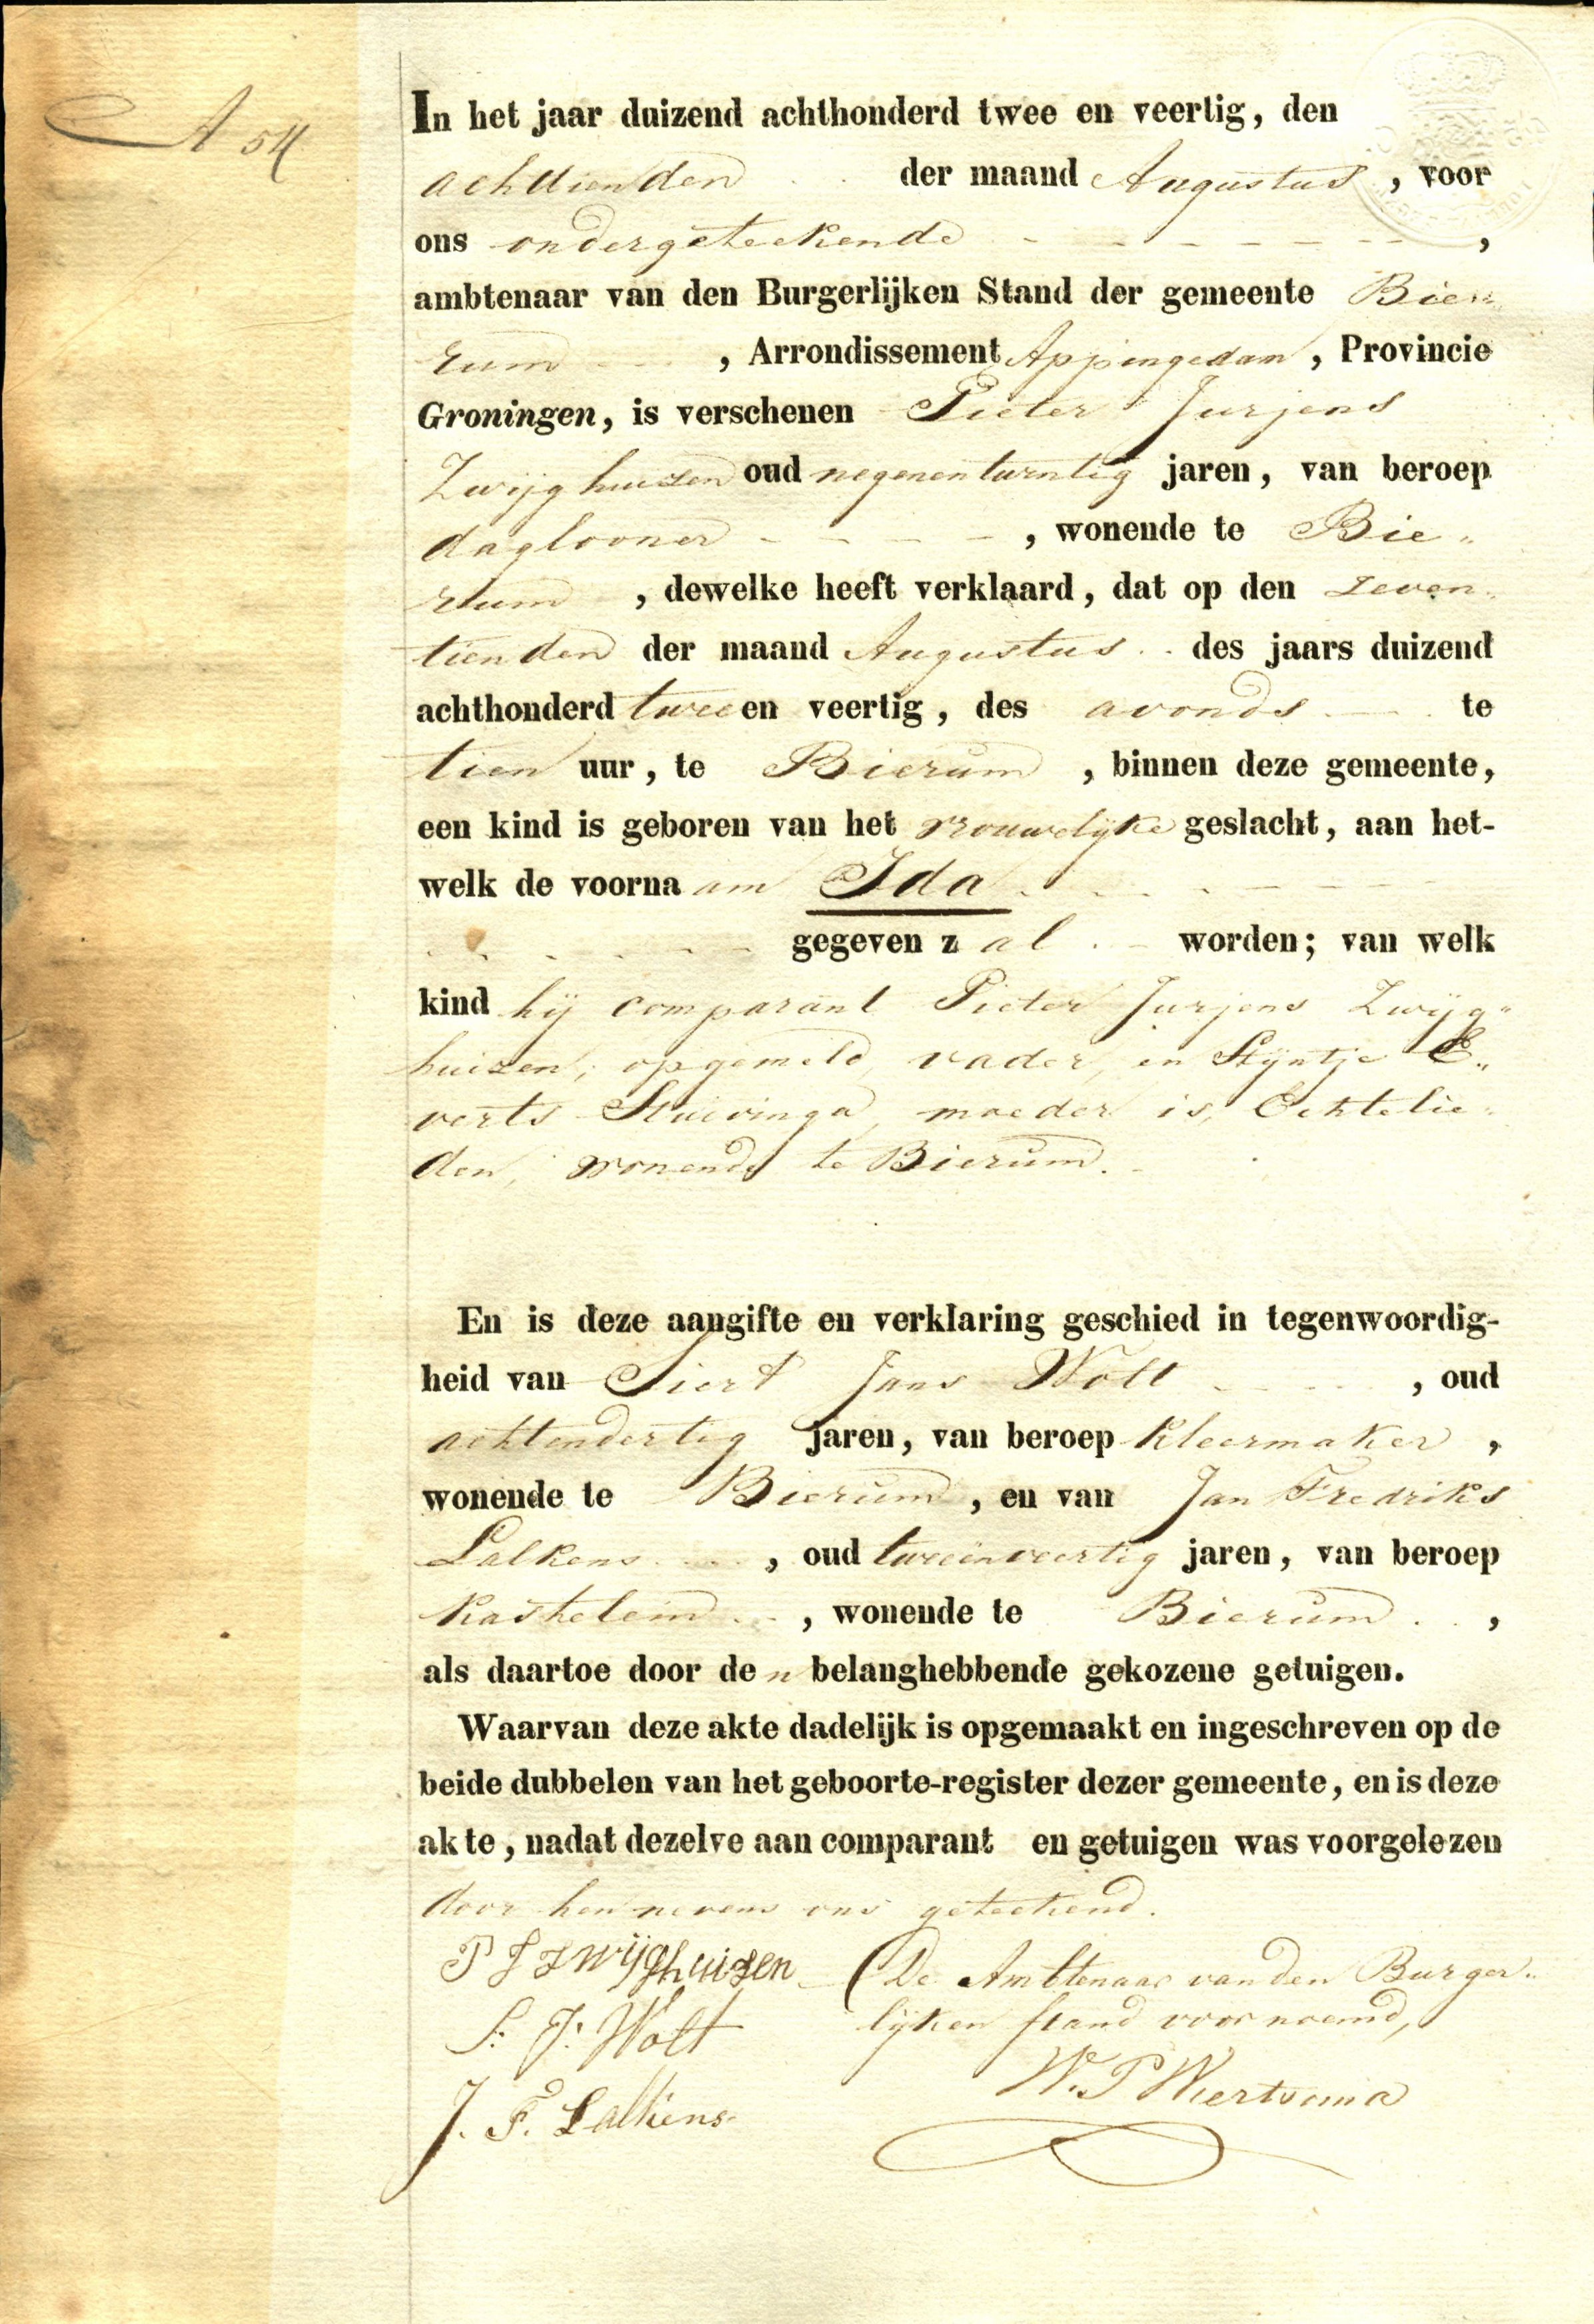 A 54
In het jaar duizend achthonderd twee en veertig, den
achttienden der maand Augustus, voor
ons ondergeteekende,
ambtenaar van den Burgerlijken Stand der gemeente Bie„
rum, Arrondissement Appingedam, Provincie
Groningen, is verschenen Pieter Jurjens
Zwijghuizen oud negenentwintig jaren, van beroep
daglooner, wonende te Bie„
rum, dewelke heeft verklaard, dat op den zeven„
tienden der maand Augustus des jaars duizend
achthonderd twee en veertig, des avonds te
tien uur, te Bierum, binnen deze gemeente,
een kind is geboren van het vrouwelijke geslacht, aan het-
welk de voornaam Ida
gegeven zal worden; van welk
kind hij comparant Pieter Jurjens Zwijg„
huizen, opgemeld, vader, en Stijntje E„
verts Stuivinga, moeder is, Echtelie„
den, wonende te Bierum.
En is deze aangifte en verklaring geschied in tegenwoordig-
heid van Siert Jans Wolt, oud
achtendertig jaren, van beroep kleermaker,
wonende te Bierum, en van Jan Fredriks
Lalkens, oud tweeenveertig jaren, van beroep
kastelein, wonende te Bierum,
als daartoe door den belanghebbende gekozene getuigen.
Waarvan deze akte dadelijk is opgemaakt en ingeschreven op de
beide dubbelen van het geboorte-register dezer gemeente, en is deze
akte, nadat dezelve aan comparant en getuigen was voorgelezen
door hen nevens ons geteekend.
P J Zwijghuizen
De Ambtenaar van den Burger„
lijken stand voornoemd,
S. J. Wolt
W. P. Wiertsema
J. F. Lalkens